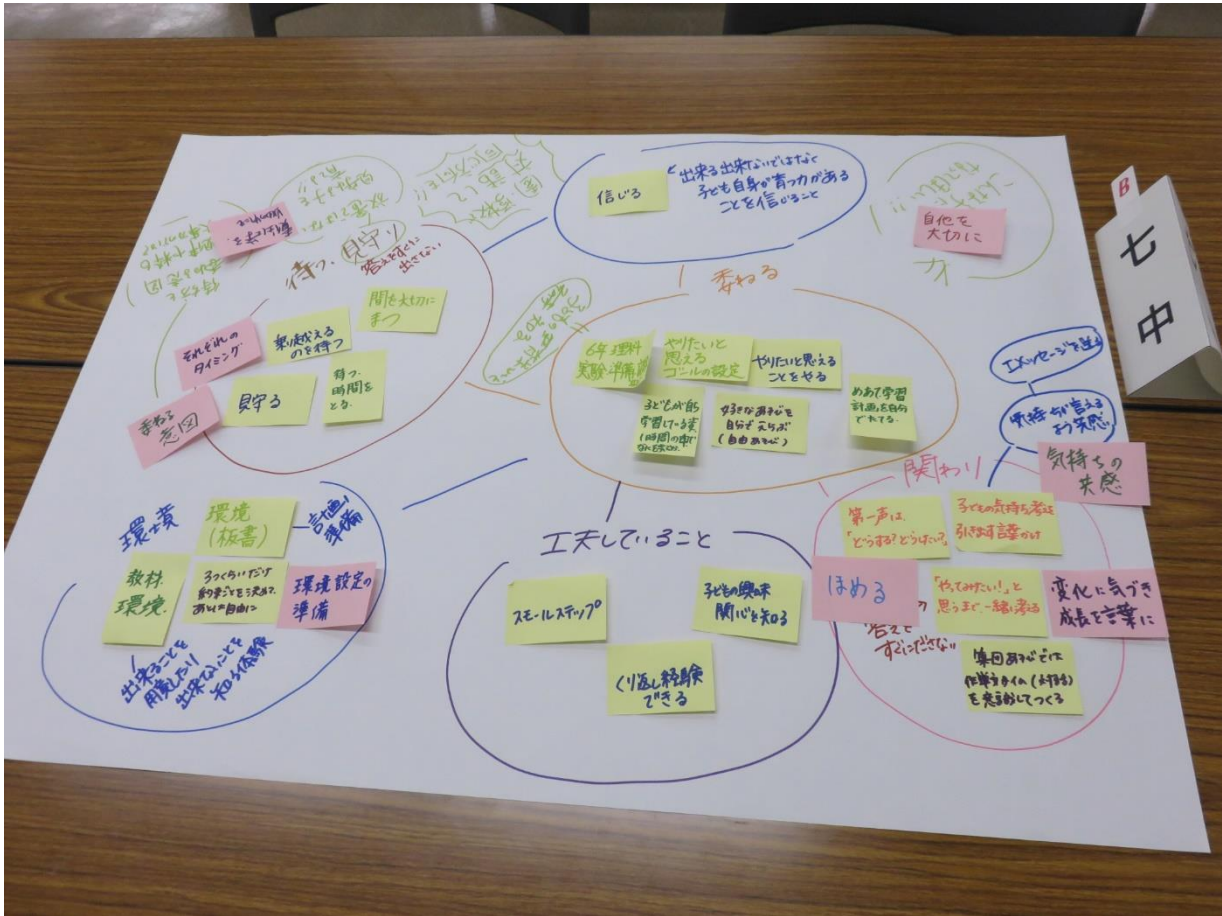 信じる
出来る出来ないではなく
子ども自身が育つ力がある
ことを信じること
自他を
大切に
B
七中
待つ、見守り
答えをすぐに
出さない
間を大切に
まつ
それぞれの
タイミング
乗り越える
のを待つ
待つ、
時間を
とる。
見守る
まねる
意図
委ねる
6年理科
実験準備
やりたいと
思える
ゴールの設定
やりたいと思える
ことをやる
子どもが
学習している
好きなあそびを
自分でえらぶ
(自由あそび)
めあて学習
計画を自分
でたてる。
Iメッセージを送る
気持ちが言える
よう共感
気持ちの
共感
関わり
第一声は、
「どうする?どうしたい?」
子どもの気持ち考えを
引き出す言葉かけ
ほめる
「やってみたい!」と
思うまで、一緒に考える
変化に気づき
成長を言葉に
答えを
すぐにださない
集団あそびでは
作戦タイム
を意識してつくる
環境
環境
(板書)
計画
準備
教材
環境
3つくらいだけ
約束ごとを決めて、
あとは自由に
環境設定の
準備
出来ることを
用意したり
出来ないことを
知る体験
工夫していること
スモールステップ
子どもの興味
関心を知る
くり返し経験
できる